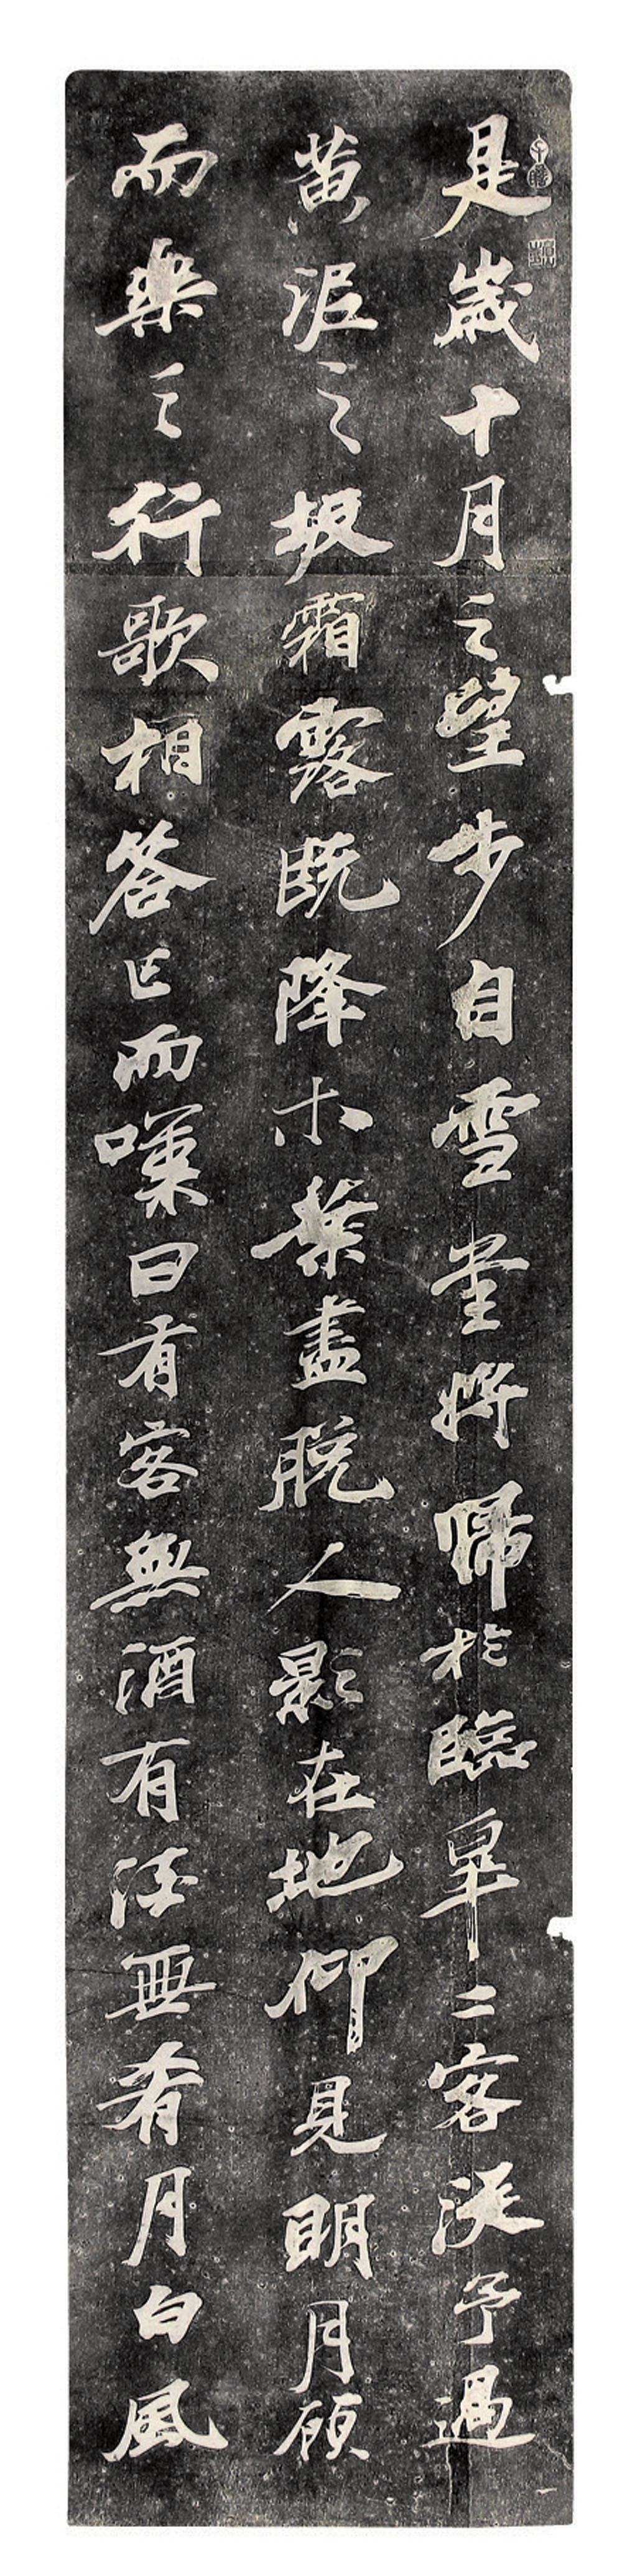 子瞻
是歲十月之望步自雪堂將歸於臨皋二客從予過
黃泥之坂霜露既降木葉盡脫人影在地仰見明月顧
而樂之行歌相答已而嘆曰有客無酒有酒無肴月白風